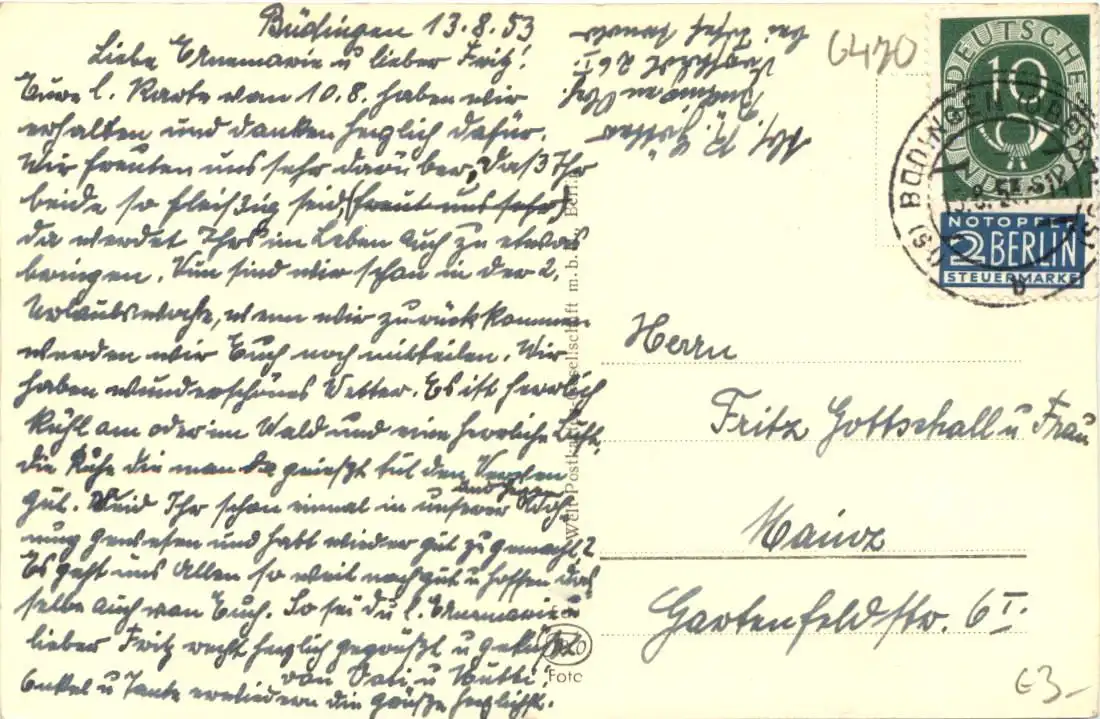 Büdingen 13.8.53
Liebe Annemarie u lieber Fritz!
Eure l. Karte vom 10.8. haben wir
erhalten und danken herzlich dafür.
Wir freuten uns sehr darüber, daß Ihr
beide so fleißig seid, (freut uns sehr)
da werdet Ihrs im Leben auch zu etwas
bringen. Nun sind wir schon in der 2.
Urlaubswoche, wenn wir zurückkommen
werden wir Euch noch mitteilen. Wir
haben wunderschönes Wetter. Es ist herrlich
kühl am oder im Wald und eine herrliche Luft.
die Ruhe die man genießt tut den Nerven
gut. Seid Ihr schon einmal in unserer Woh-
nung gewesen und habt wieder gut zugemacht?
Es geht uns Allen so weit noch gut u hoffen das
selbe auch von Euch. So sei du l. Annemarie u
lieber Fritz recht herzlich gegrüßt u geküßt
von Vati u Mutti!
Onkel u Tante erwiedern die Grüße herzlichst.
Abs. R.
6470
DEUTSCHE
10
BÜDINGEN
NOTOPFER
2 BERLIN
STEUERMARKE
b
Herrn
Fritz Gottschall u Frau
Mainz
Gartenfeldstr. 6 I.
Welt-Postkarten-Gesellschaft m. b. Berlin
Foto
€3-